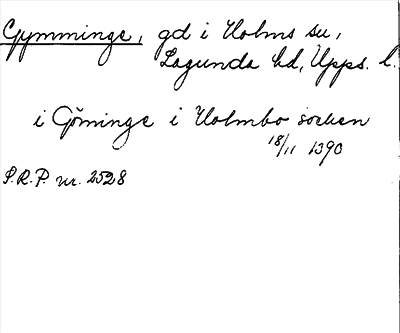 Gymminge, gd i Holms sn,
Lagunda hd, Upps. l.
i Gōminge i Holmbo socken
18/11 1390
S.R.P. nr. 2528